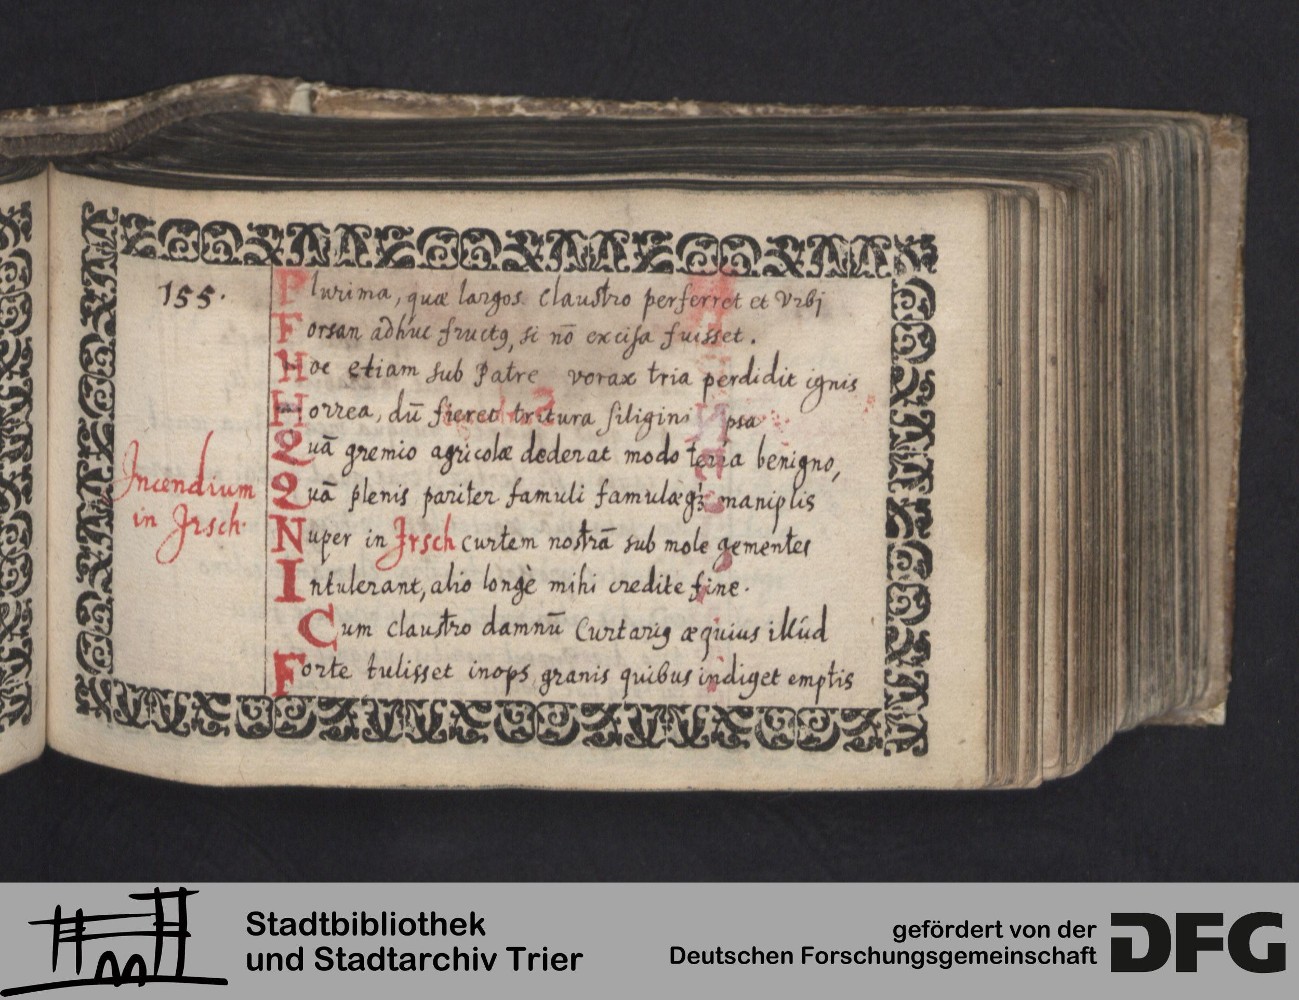 155.
Plurima, quæ largos claustro perferret et Vrbi
Forsan adhuc fructꝯ, si nō excisa fuisset.
Hoc etiam sub Patre vorax tria perdidit ignis
Horrea, dū fieret tritura siligini psa
Quā gremio agricolæ dederat modo terra benigno,
Quā plenis pariter famuli famulæqꝫ maniplis
Incendium
in Jrsch.
Nuper in Jrsch curtem nostrā sub mole gementes
Intulerant, alio longè mihi credite fine.
Cum claustro damnū Curtariꝯ æquius illud
Forte tulisset inops granis quibus indiget emptis
Stadtbibliothek
und Stadtarchiv Trier
gefördert von der
Deutschen Forschungsgemeinschaft
DFG